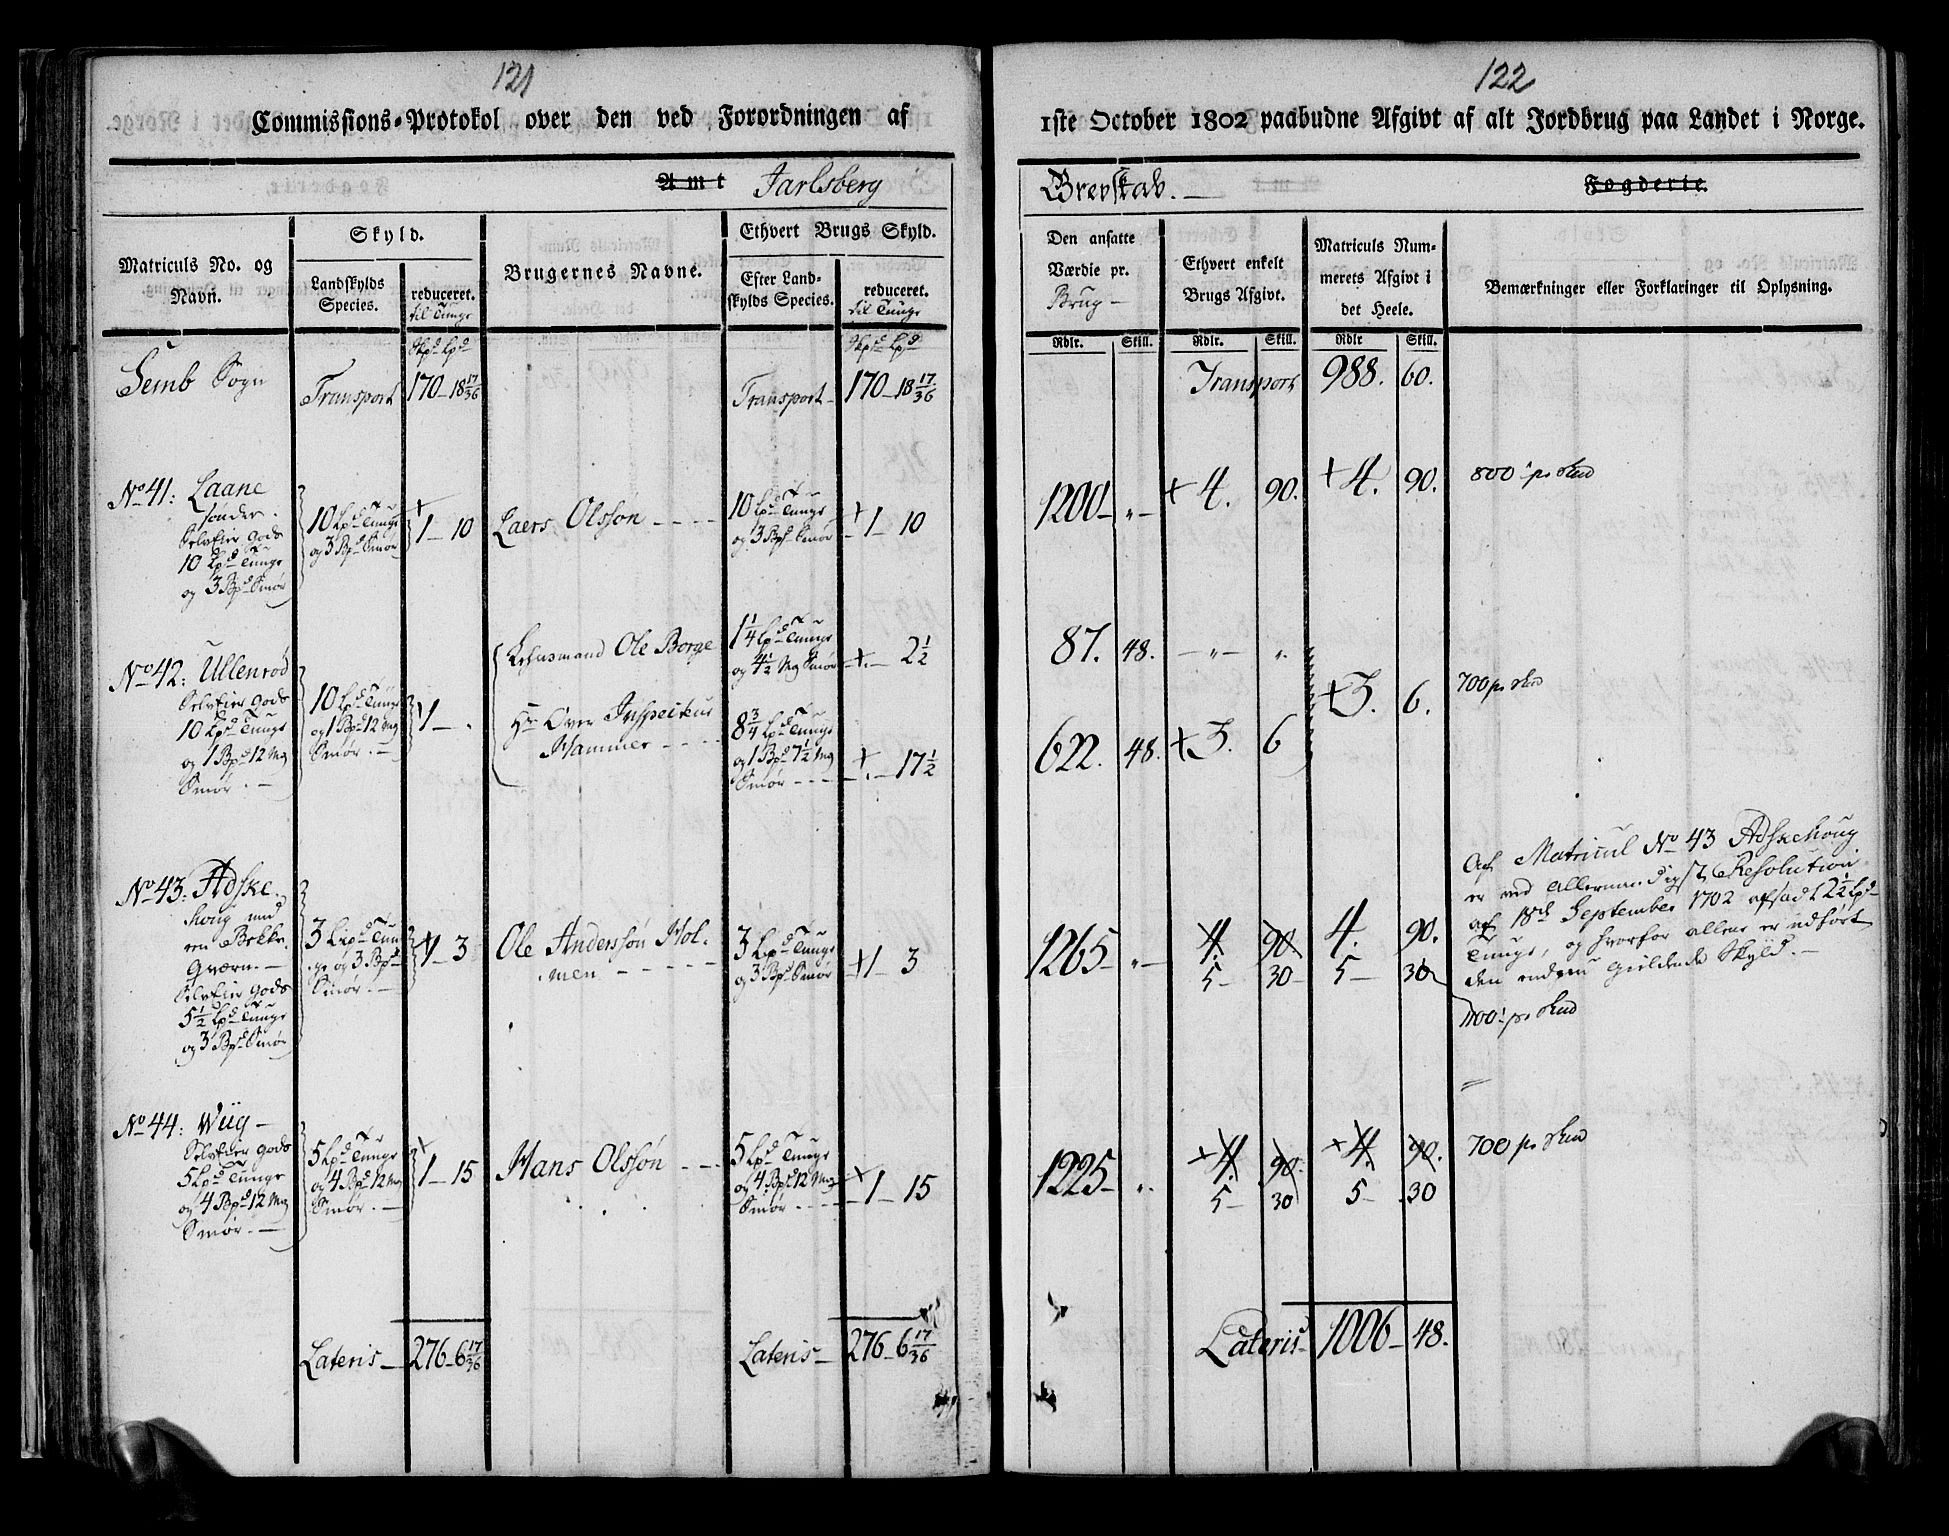 121
Commissions-Protokol over den ved Forordningen af
Amt Jarlsberg
Matriculs No. og Navn.
Skyld.
Landskylds Species.
reduceret. til Tunge
Brugernes Navne.
Ethvert Brugs Skyld.
Efter Landskylds Species.
reduceret. til Tunge
Skpd Lpd
Skpd Lpd
Semb Sogn
Transport
170 - 18 17/36
Transport -
170 - 18 17/36
No 41: Laane
søndre.
Selveier Gods
10 Lpd Tunge
og 3 Bpd Smør
10 Lpd Tunge
og 3 Bpd Smør
+ 1 - 10
Laers Olssøn - - - -
10 Lpd Tunge
og 3 Bpd Smør
+ 1 - 10
No 42: Ullenrød
Selveier Gods
10 Lpd Tunge
og 1 Bpd 12 Mg
Smør. -
10 Lpd Tunge
og 1 Bpd 12 Mg
Smør. -
1 - .
Lehnsmand Ole Borge
1 1/4 Lpd Tunge
og 4 1/2 Mg Smør
+. - 2 1/2
Hr Over Inspecteur
Hammer - - - -
8 3/4 Lpd Tunge
og 1 Bpd 7 1/2 Mg
Smør - - - -
+. - 17 1/2
No 43: Adske-
houg med
en Bekke
Qværn. -
Selveier Gods
5 1/2 Lpd Tunge
og 3 Bpd Smør
3 Lpd Tun
ge og 3 Bpd
Smør. -
+ 1 - 3
Ole Anderssøn Hol-
men - - - - - -
3 Lpd Tunge
og 3 Bpd Smør
+ 1 - 3
No 44: Wiig -
Selveier Gods
5 Lpd Tunge
og 4 Bpd 12 Mg
Smør. -
5 Lpd Tunge
og 4 Bpd 12 Mg
Smør. -
+ 1 - 15
Hans Olssøn - - -
5 Lpd Tunge
og 4 Bpd 12 Mg
Smør - - - -
+ 1 - 15
Lateris -
276 - 6 17/36
Lateris -
276 - 6 17/36
122
1ste October 1802 paabudne Afgivt af alt Jordbrug paa Landet i Norge.
Grevskab. -
Fogderie.
Den ansatte Værdie pr. Brug -
Ethvert enkelt Brugs Afgivt.
Matriculs Nummerets Afgivt i det Heele.
Bemærkninger eller Forklaringer til Oplysning.
Rdlr. Skill. Rdlr. Skill. Rdlr Skill.
Transport 988. 60.
1200 - „ - + 4. 90. + 4. 90. 800 pr Skd
87. 48. - „ - „.
+ 3. 6. 700 pr Skd
622. 48. + 3. 6
Af Matricul No 43 Adskehoug
er ved allernaadigst Resolution
af 18de September 1702 afsadt 2 1/2 Lpd
Tunge, og hvorfor allene er udført
den endnu gieldende Skyld. -
1265 - „ - 4. 90. 4. 90.
5 - 30 - 5 - 30
1100 pr Skd
1225 - „. + 4. 90. + 4. 90. 700 pr Skd
5 - 30 5 - 30
Lateris 1006 - 48.